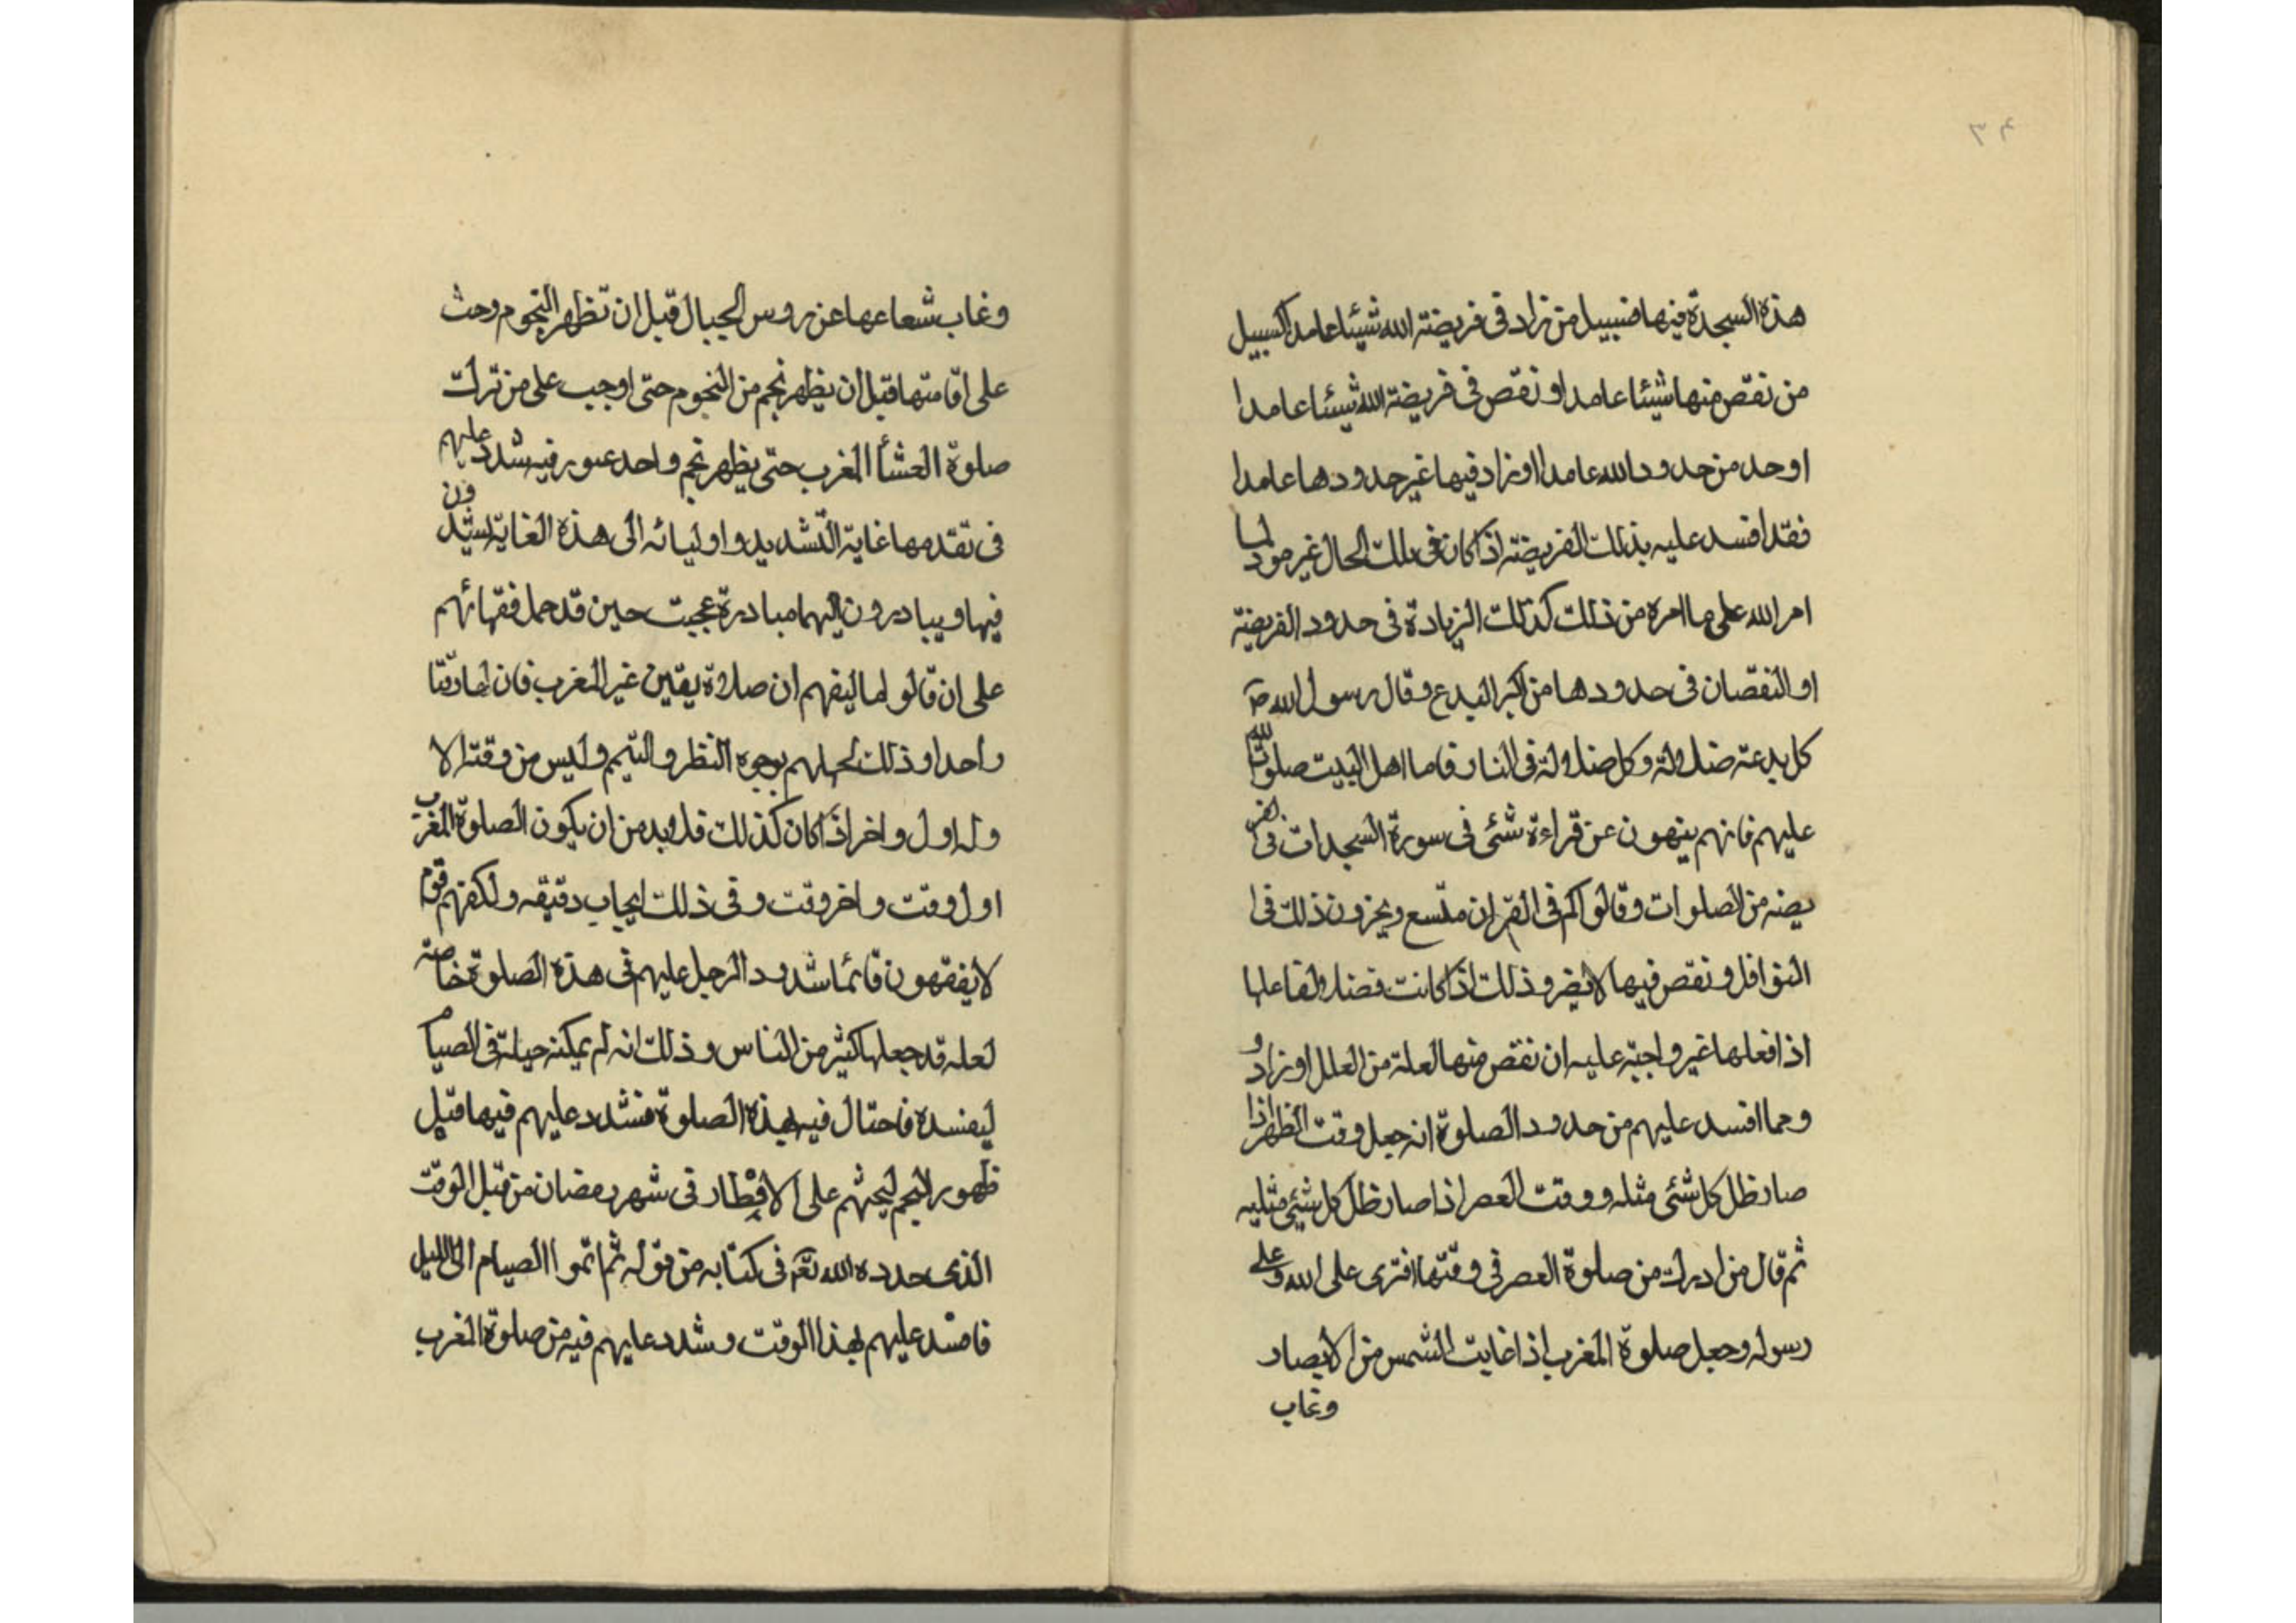 ٣٤
هذه السجدة فيها فسبيل من زاد في فريضة الله شيئا عامدا كسبيل
من نقص منها شيئا عامدا او نقص في فريضة الله شيئا عامدا
او حد من حدود الله عامدا او زاد فيها غير حدودها عامدا
فقد افسد عليه بذلك الفريضة اذا كان في تلك الحال غير مود لما
امر الله على ما امره من ذلك كذلك الزيادة في حدود الفريضة
او النقصان في حدودها من اكبر البدع وقال رسول الله ص
كل بدعة ضلالة وكل ضلالة في النار فاما اهل البيت صلوات الله
عليهم فانهم ينهون عن قراءة شئ في سورة السجدات في الفر
يضه من الصلوات وقالوا كم في القران متسع ويجزون ذلك في
النوافل ونقص فيها لا يضر وذلك اذا كانت فضلا ولفاعلها
اذا فعلها غير واجبة عليه ان نقص منها لعلة من العلل او زاد و
ومما افسد عليهم من حدود الصلوة انه جعل وقت الظهر اذا
صار ظل كل شئ مثله ووقت العصر اذا صار ظل كل شئ مثليه
ثم قال من ادرك من صلوة العصر في وقتها افترى على الله وعلى
رسوله وجعل صلوة المغرب اذا غابت الشمس من الابصار
وغاب
وغاب شعاعها عن روس الجبال قبل ان تظهر النجوم وحث
على اقامتها قبل ان يظهر نجم من النجوم حتى اوجب على من ترك
صلوة العشأ المغرب حتى يظهر نجم واحد عتق رقبه شدد عليهم
في تقدمها غاية التشديد واوليائه الى هذه الغاية يشتدون
فيها ويبادرون اليها مبادرة عجبت حين قد حمل فقهائهم
على ان قالوا لما ليفهم ان صلاة يقين غير المغرب فان لها وقتا
واحدا وذلك لجهلهم بوجوه النظر والتيم وليس من وقت الا
وله اول واخر اذا كان كذلك فلابد من ان يكون الصلوة المغرب
اول وقت واخر وقت وفي ذلك ايجاب دقيقه ولكنهم قوم
لا يفقهون فانما شدد الرجل عليهم في هذه الصلوة خاصة
لعله قد جعلها كثير من الناس وذلك انه لم يمكنه حيلة في الصيام
ليفسده فاحتال فيه بهذه الصلوة فشدد عليهم فيها قبل
ظهور النجم ليحثهم على الافطار في شهر رمضان من قبل الوقت
الذى حدده الله تع في كتابه من قوله ثم اتموا الصيام الى الليل
فافسد عليهم بهذا الوقت وشدد عليهم فيه من صلوة المغرب